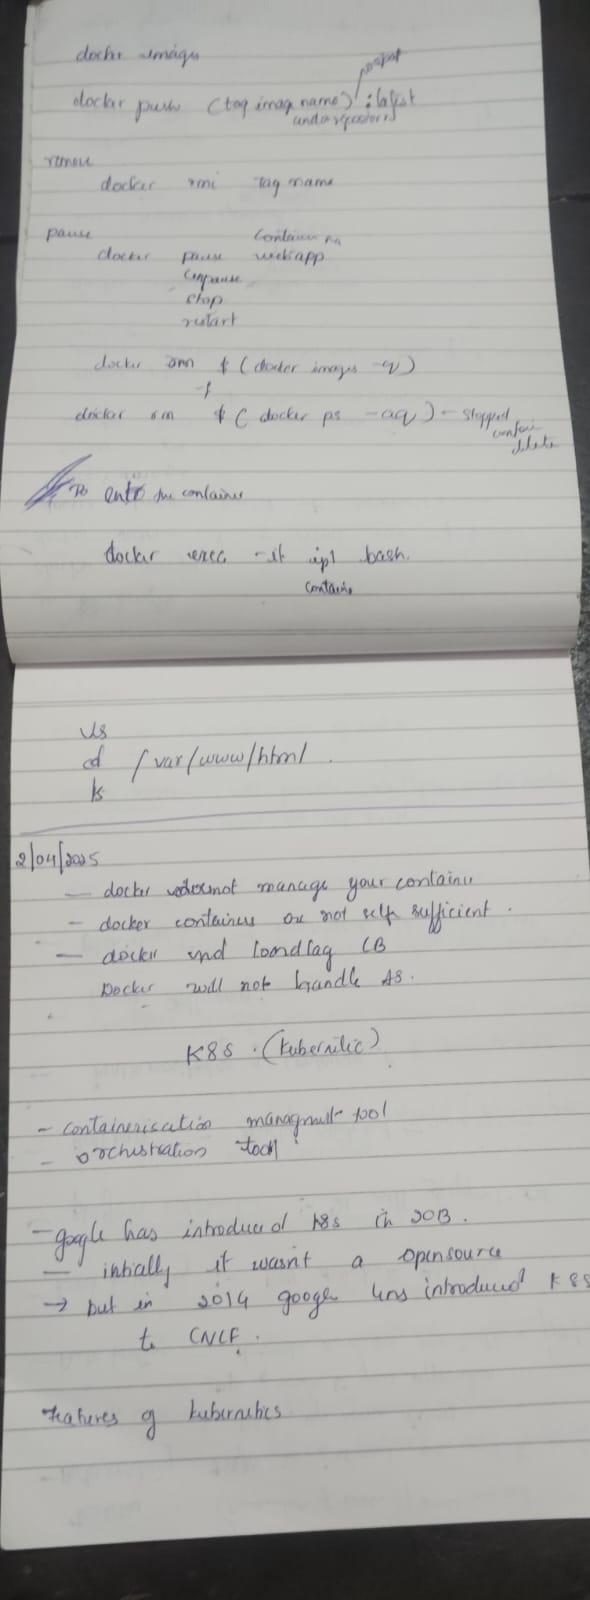 docker images
no space
docker push (tag image name) : latest
and repository
remove
docker rmi Tag name
pause
docker pause webapp
unpause
stop
restart
docker $ (docker images -q)
-f
docker rm $ ( docker ps -aq ) - stopped
delete
To enter the container
docker exec -it bash.
ls
cd /var/www/html
ls
2/04/2025
- docker not manage your container
- docker containers are not self sufficient.
- docker LB
Docker will not handle AS.
K8S. (kubernetic)
- containerisation managment tool
- orchestration tool
- google has introduced K8s in 2013.
- initially it wasn't a opensource
→ but in 2014 google has introduced K8S
to CNCF.
Features of kubernetics